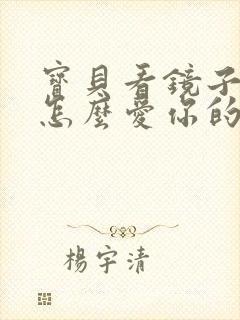 寶貝看鏡子
怎麼愛你的
楊宇清